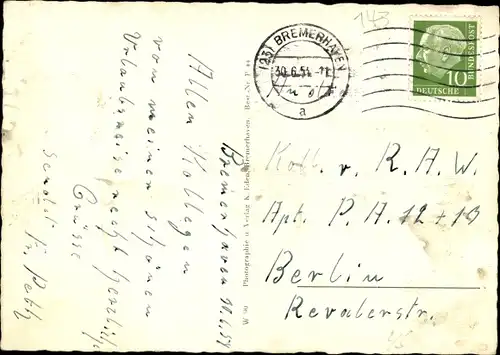 143
(23) BREMERHAVEN
30.6.54
a
10
DEUTSCHE
BUNDESPOST
Bremerhaven
Allen Kollegen
vom meinen schönen
Urlaubsreise recht herzliche
Grüsse
sendet
Photographie u. Verlag K. Eden, Bremerhaven.
W 90
Koll. v. R. A. W.
Apt. P. A. 12 + 13
Berlin
Revalerstr.